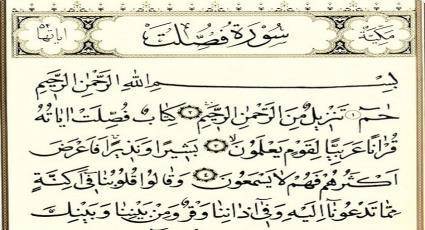 مكية سورة فصلت اياتها
بسم الله الرحمن الرحيم
حٰمٓ ١ تَنْزِيلٌ مِنَ الرَّحْمٰنِ الرَّحِيمِ ٢ كِتَابٌ فُصِّلَتْ اٰيَاتُهُ
قُرْاٰنًا عَرَبِيًّا لِقَوْمٍ يَعْلَمُونَ ٣ بَشِيرًا وَنَذِيرًا فَاَعْرَضَ
اَكْثَرُهُمْ فَهُمْ لَا يَسْمَعُونَ ٤ وَقَالُوا قُلُوبُنَا فِٓى اَكِنَّةٍ
مِمَّا تَدْعُونَٓا اِلَيْهِ وَفِٓى اٰذَانِنَا وَقْرٌ وَمِنْ بَيْنِنَا وَبَيْنِكَ